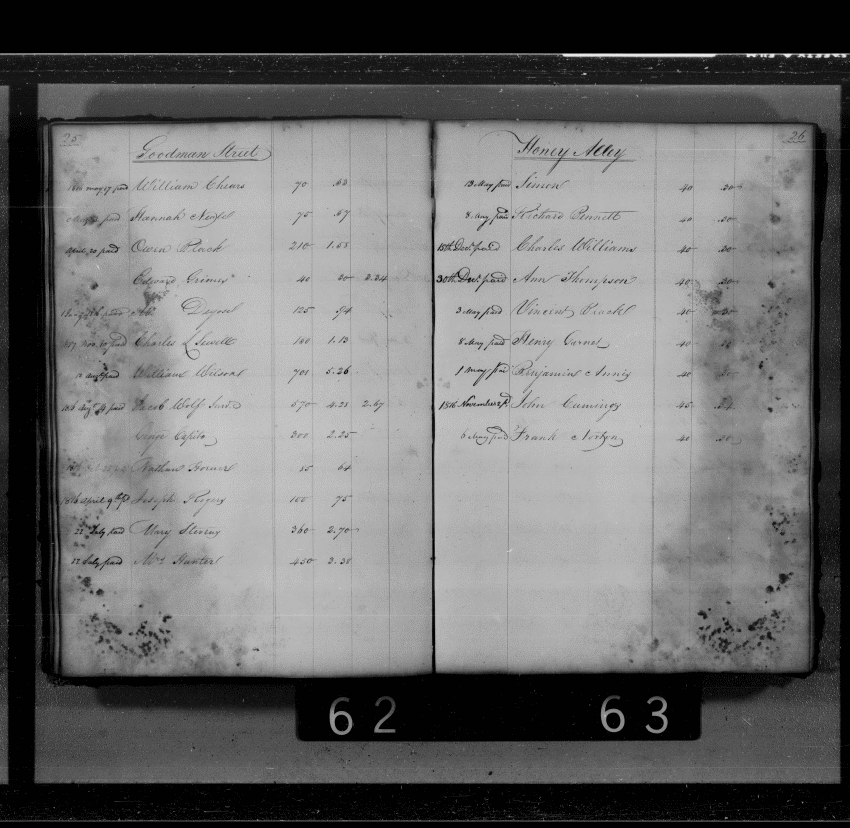 25
Goodman Street
may 17 paid William Cheers 70 .53
paid Hannah 75 .57
April 20 paid Owen 210 1.58
Edward Grimes 40 30 2.24
paid 125 94
Nov. 10 paid Charles L Sewell 1.13
Augt paid William Wilson 701 5.26
1816 Augt paid Jacob Wolf 570 4.28 2.67
George Capito 300 2.25
Nathan Horner 85 64
1816 April 9th pd Joseph Rogers 100 75
22 July paid Mary Stevens 360 2.70
17 July paid Mrs Hunter 450 3.38
26
Honey Alley
13 May paid Simon 40 .30
8 May paid Richard Bennett 40 .30
15th Decr. paid Charles Williams 40 .30
30th Decr. paid Ann Thompson 40 .30
3 May paid Vincent 40 .30
8 May paid Henry Garnet 40
1 May paid Benjamin Annis 40 .30
1816 November John Cumings 45 .34
6 May paid Frank 40 .30
62
63